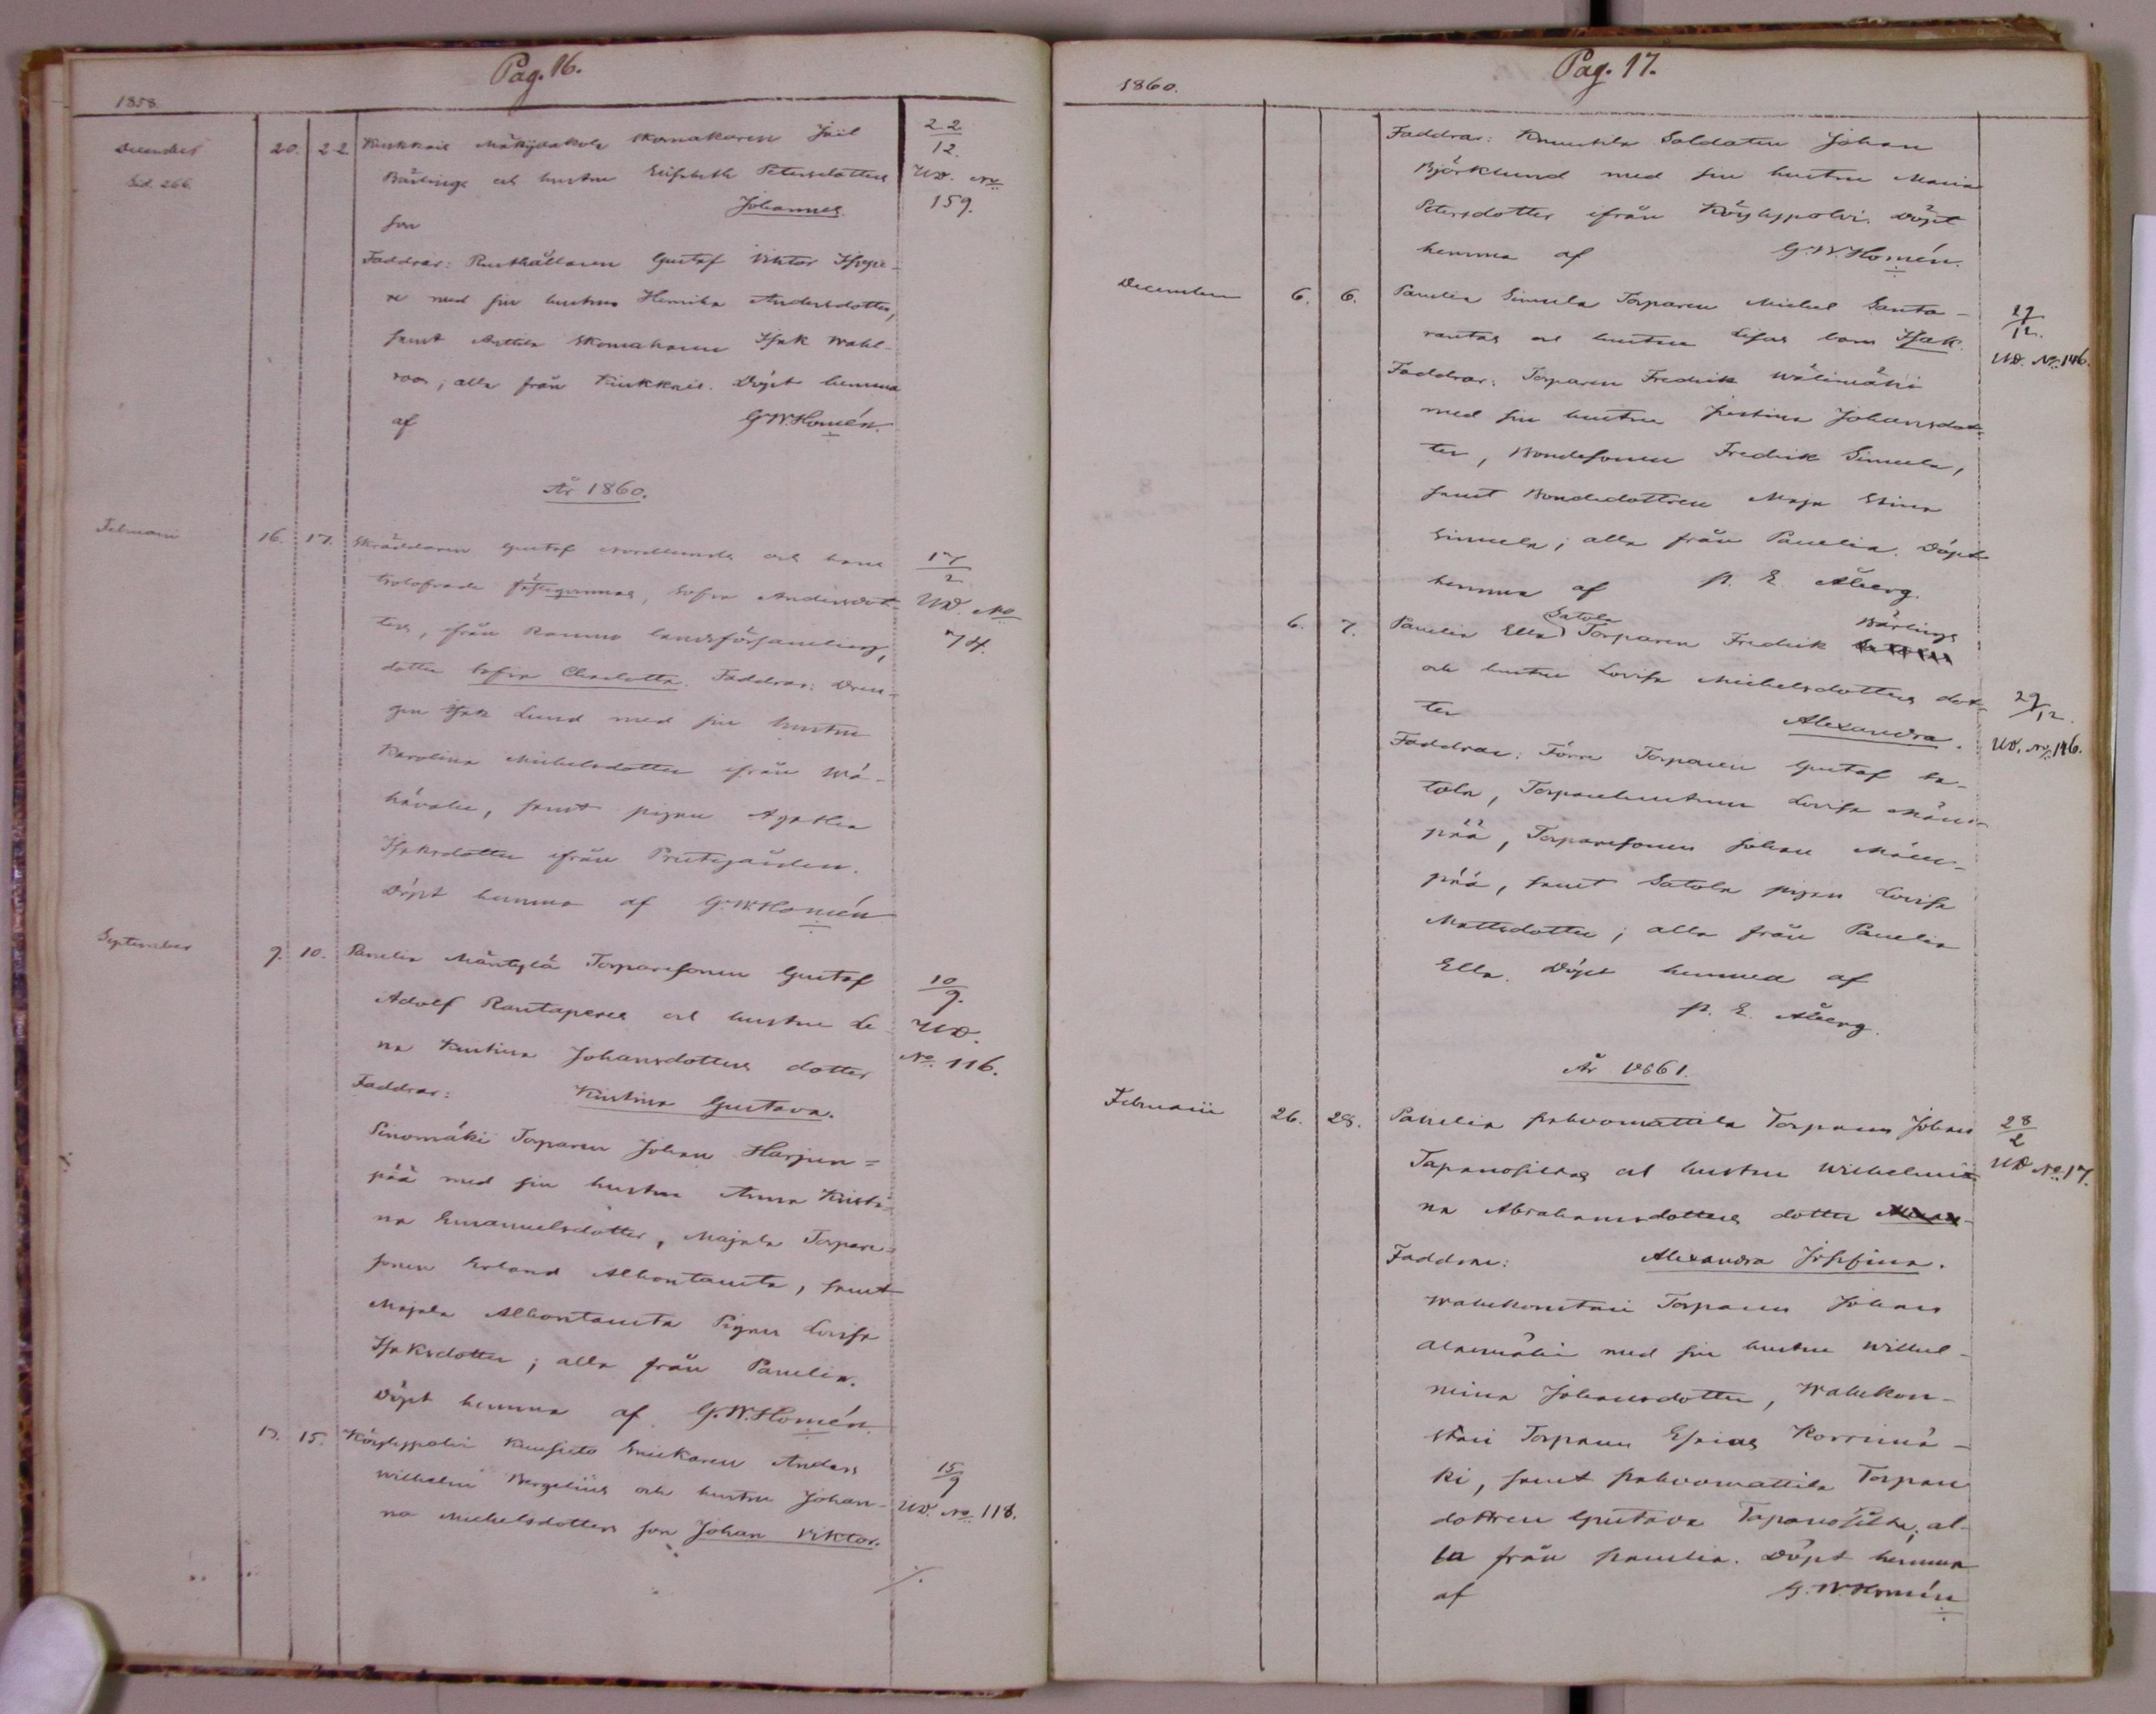 Pag. 16.
1858.
December 20. 22. Kiukkais Mäkijaakola Skomakaren Joil 22/12.
Sid. 266. Bärlings och hustru Elisabeth Petersdotters UD. No
son Johannes. 159.
Faddrar: Rusthållaren Gustaf Viktor
med sin hustru Henrika Andersdotter,
samt Anttila Skomakaren Isak Wahl-
roos; alla från Kiukkais. Döpt hemma
af G.W. Homén.
År 1860.
Februari 16. 17. Skräddaren Gustaf Nordlunds och hans 17/2
trolofvade fästeqvinnas, Sofia Andersdot- UD. No
ters, ifrån Raumo landsförsamling, 74.
dotter Sofia Charlotta. Faddrar: Dren-
gen Isak Lund med sin hustru
Karolina Michelsdotter ifrån Wä-
hävalu, samt pigan Agatha
Isaksdotter ifrån Prestgården.
Döpt hemma af G.W. Homén
September 9. 10. Panelia Mäntylä Torparesonen Gustaf 10/9.
Adolf Rantaperes och hustru Le- UD.
na Kustina Johansdotters dotter No. 116.
Faddrar: Kustina Gustava.
Sinomäki Torparen Johan Harjun=
pää med sin hustru Anna Kristi-
na Emanuelsdotter, Majala Torpare=
sonen Erland Alhontausta, samt
Majala Alhontausta Pigan Lovisa
Isaksdotter; alla från Panelia.
Döpt hemma af G.W. Homén.
13. 15. Köyhypolvi Kuusisto Snickaren Anders 15/9
Wilhelm Bergelius och hustru Johan- UD. No 118.
na Michelsdotters son Johan Viktor.
Pag. 17.
1860.
Faddrar: Knuutila Soldaten Johan
Björklund med sin hustru Maria
Petersdotter ifrån Köyhypolvi. Döpt
hemma af G.W. Homén.
December 6. 6. Panelia Simula Torparen Michel Santa- 29/12.
rantas och hustru Lisas barn Isak. UD. No. 146.
Faddrar: Torparen Fredrik Wälimäki
med sin hustru Justina Johansdot-
ter, Bondesonen Fredrik Simula,
samt Bondedottren Maja Stina
Simula; alla från Panelia. Döpt
hemma af P. E. Åberg.
6. 7. Panelia Ella Satola Torparen Fredrik Bärlings
och hustru Lovisa Michelsdotters dot- 29/12.
ter Alexandra. UD. No. 146.
Faddrar: Förra Torparen Gustaf Sa-
tola, Torparehustrun Lovisa Mäen-
pää, Torparesonen Johan Mäen-
pää, samt Satola pigan Lovisa
Mattsdotter; alla från Panelia
Ella. Döpt hemma af
P. E. Åberg.
År 1861.
Februarii 26. 28. Panelia Paavomattila Torparen Johan 28/2
Tapanosiltas och hustru Wilhelmi- UD No. 17.
na Abrahamsdotters dotter
Faddrar: Alexandra Josefina.
Wahekonstari Torparen Johan
Alasmäki med sin hustru Wilhel-
mina Johansdotter, Wahekon-
stari Torparen Esaias Korrimä-
ki, samt Paavomattila Torpare
dottren Gustava Tapanosilta; al-
la från Panelia. Döpt hemma
af G.W. Homén